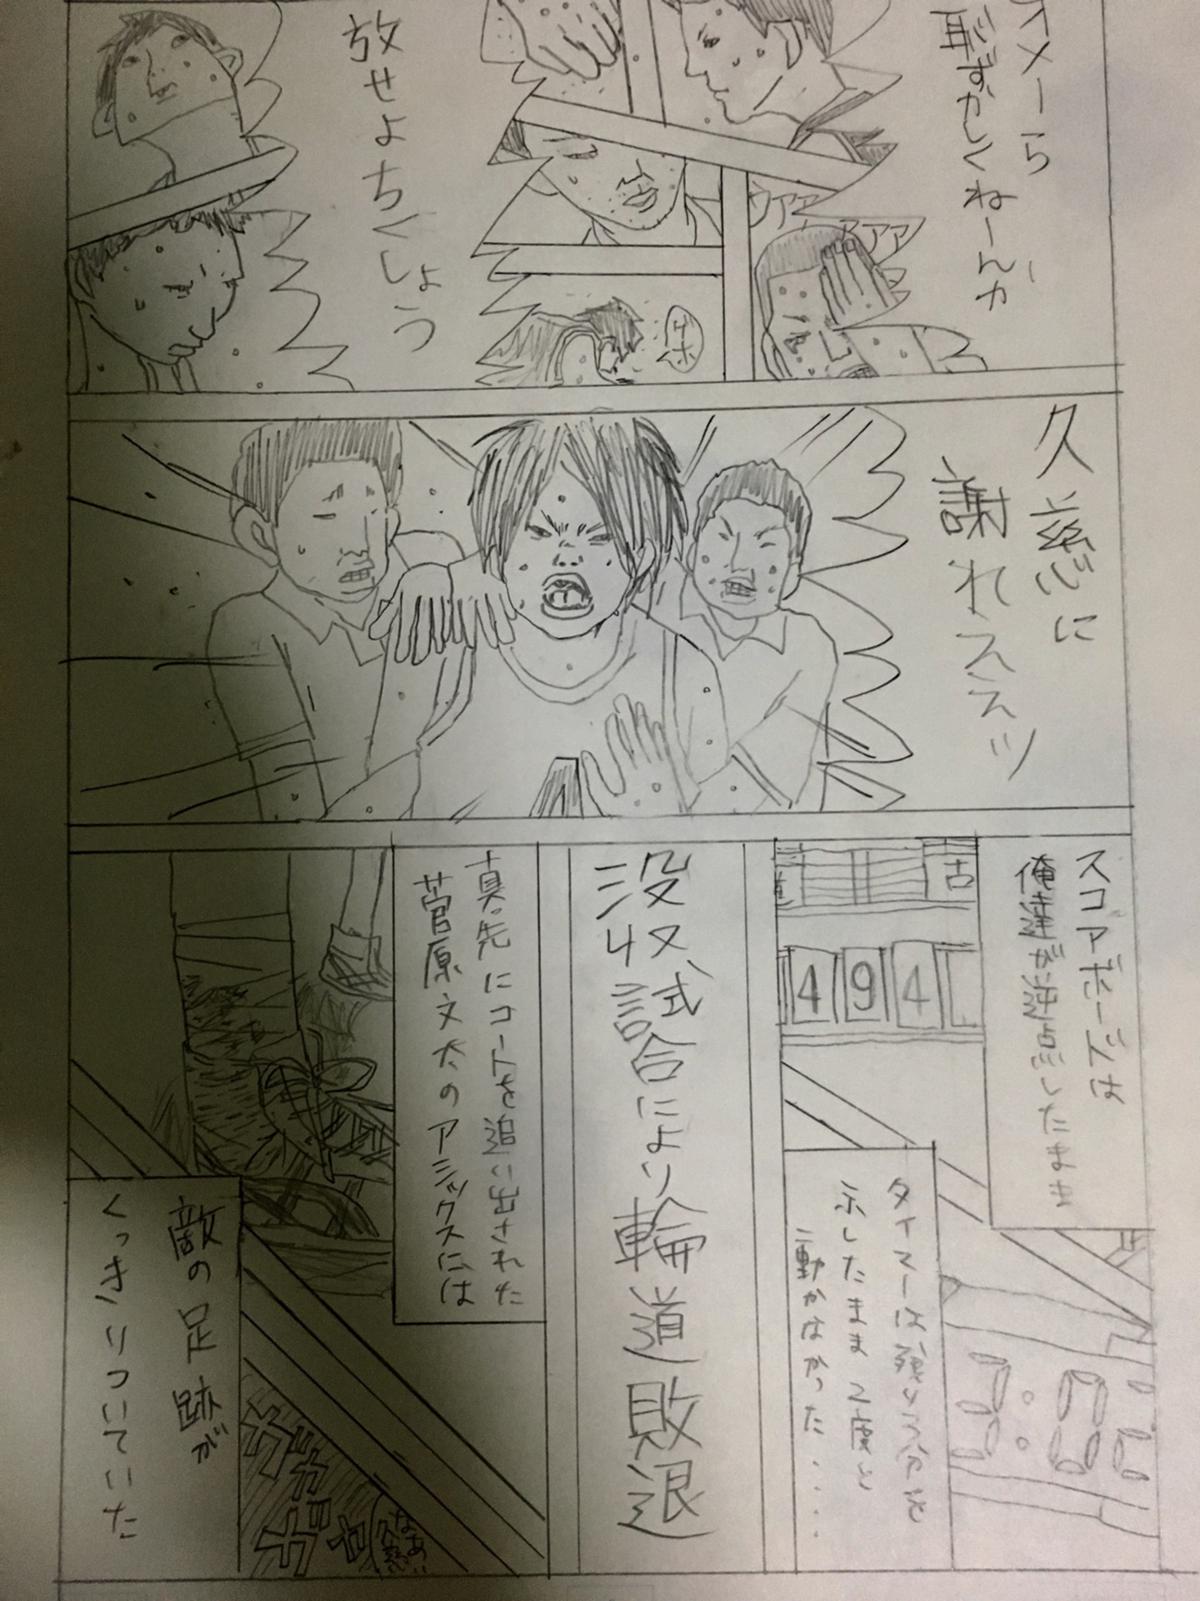 オメーら
恥ずかしくねーんか
ウアァ
アアア
ゲホ
放せよちくしょう
久慈に
謝れええッ
スコアボードは
俺達が逆点したまま
古
494
タイマーは残り
示したまま2度と
動かなかった・・・・
没収試合により輪道敗退
真っ先にコートを追い出された
菅原文太のアシックスには
敵の足跡が
くっきりついていた
ザザ
なあ